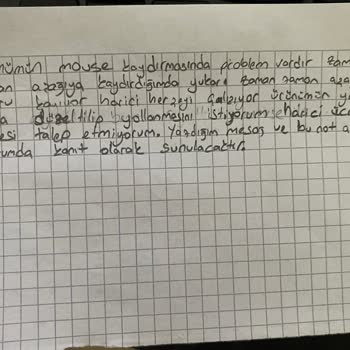 mouse kaydırmasında problem vardır zam
aşağıya kaydırdığımda yukarı zaman zaman aşa
harici herşeyi çalışıyor ürünümün y
düzeltilip yollanmesini istiyorum harici
talep etmiyorum. Yazdığım mesaj ve bu not a
kanıt olarak sunulacaktır.